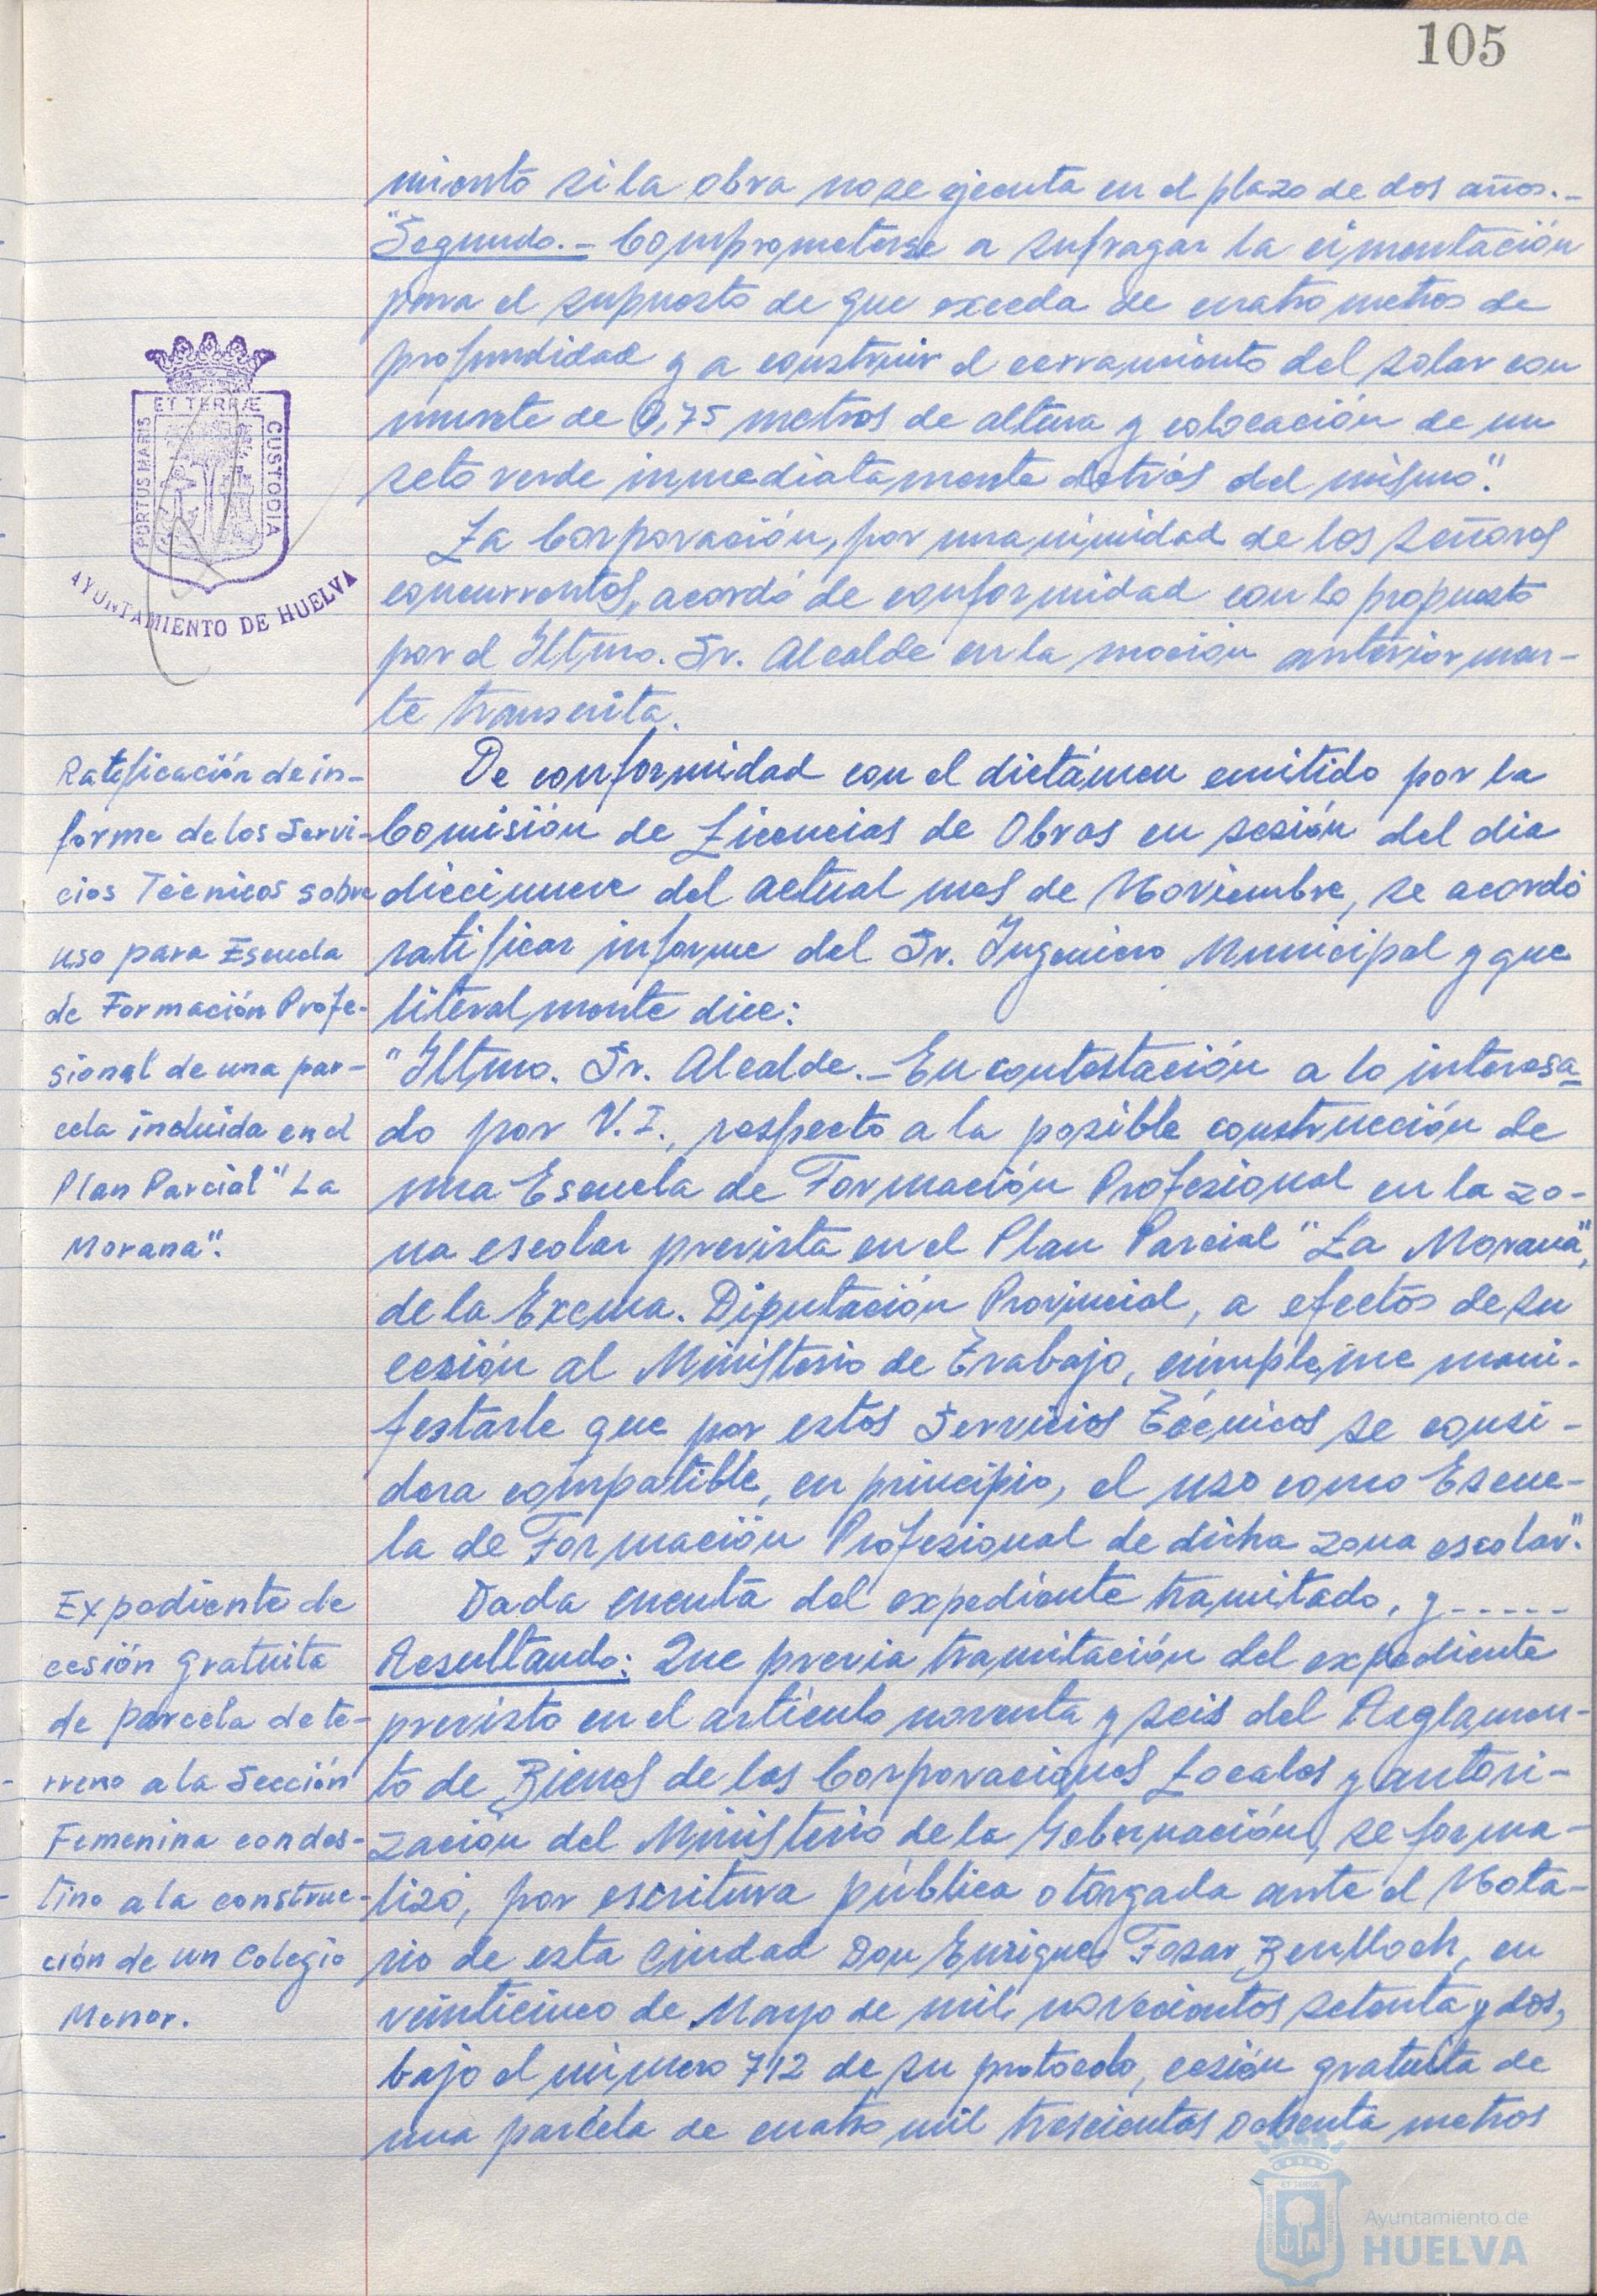 105
miento si la obra no se ejecuta en el plazo de dos años.-
"Segundo.- Comprometerse a sufragar la cimentación
para el supuesto de que exceda de cuatro metros de
profundidad y a construir el cerramiento del solar con
murete de 0,75 metros de altura y colocación de un
seto verde inmediatamente detrás del mismo".
ET TERRÆ
PORTUS MARIS
CUSTODIA
AYUNTAMIENTO DE HUELVA
La Corporación, por unanimidad de los señores
concurrentes, acordó de conformidad con lo propuesto
por el Iltmo. Sr. Alcalde en la moción anteriormen-
te transcrita.
Ratificación de in-
forme de los Servi-
cios Técnicos sobre
uso para Escuela
de Formación Profe-
sional de una par-
cela incluida en el
Plan Parcial "La
Morana".
De conformidad con el dictámen emitido por la
Comisión de Licencias de Obras en sesión del dia
diecinueve del actual mes de Noviembre, se acordó
ratificar informe del Sr. Ingeniero Municipal y que
literalmente dice:
"Iltmo. Sr. Alcalde.- En contestación a lo interesa-
do por V.I., respecto a la posible construcción de
una Escuela de Formación Profesional en la zo-
na escolar prevista en el Plan Parcial "La Morana",
de la Excma. Diputación Provincial, a efectos de su
cesión al Ministerio de Trabajo, cúmpleme mani-
festarle que por estos Servicios Técnicos se consi-
dera compatible, en principio, el uso como Escue-
la de Formación Profesional de dicha zona escolar".
Expediente de
cesión gratuita
de parcela de te-
rreno a la Sección
Femenina con des-
tino a la construc-
ción de un Colegio
Menor.
Dada cuenta del expediente tramitado, y-----
Resultando: Que previa tramitación del expediente
previsto en el artículo noventa y seis del Reglamen-
to de Bienes de las Corporaciones Locales y autori-
zación del Ministerio de la Gobernación, se forma-
lizó, por escritura pública otorgada ante el Nota-
rio de esta Ciudad Don Enrique Fosar Benlloch, en
veinticinco de Mayo de mil novecientos setenta y dos,
bajo el número 712 de su protocolo, cesión gratuita de
una parcela de cuatro mil trescientos ochenta metros
Ayuntamiento de
HUELVA